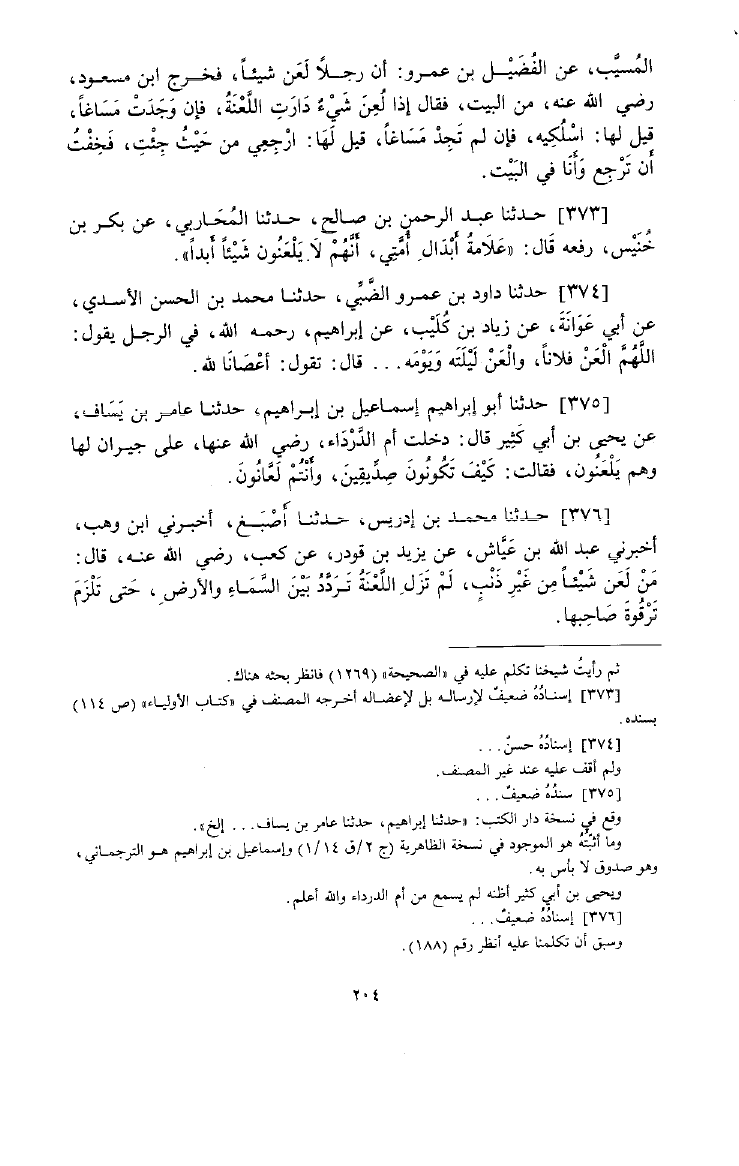 المُسيَّب، عن الفُضَيْل بن عمرو: أن رجلاً لَعَن شيئاً، فخرج ابن مسعود،
رضي الله عنه، من البيت، فقال إذا لُعِنَ شَيْءٌ دَارَتِ اللَّعْنَةُ، فإن وَجَدَتْ مَسَاغاً،
قيل لها: اسْلُكيه، فإن لم تَجِدْ مَسَاغاً، قيل لَهَا: ارْجِعي من حَيْثُ جِئْتِ، فَخِفْتُ
أن تَرْجِع وَأَنَا في البَيْت.
[٣٧٣] حدثنا عبد الرحمن بن صالح، حدثنا المُحَاربي، عن بكر بن
خُنَيْس، رفعه قَال: «عَلَامَةُ أَبْدَالِ أُمَّتِي، أَنَّهُمْ لَا يَلْعَنُون شَيْئاً أَبداً».
[٣٧٤] حدثنا داود بن عمرو الضَّبِّي، حدثنا محمد بن الحسن الأسدي،
عن أبي عَوَانَةَ، عن زياد بن كُلَيْب، عن إبراهيم، رحمه الله، في الرجل يقول:
اللَّهُمَّ الْعَنْ فلاناً، والْعَنْ لَيْلَتَه وَيَوْمَه... قال: تقول: أعْصَانَا لله.
[٣٧٥] حدثنا أبو إبراهيم إسماعيل بن إبراهيم، حدثنا عامر بن يَسَاف،
عن يحيى بن أبي كَثِير قال: دخلت أم الدَّرْدَاء، رضي الله عنها، على جيران لها
وهم يَلْعَنُون، فقالت: كَيْفَ تَكُونُونَ صِدِّيقِينَ، وأَنْتُمْ لَعَّانُونَ.
[٣٧٦] حدثنا محمد بن إدريس، حدثنا أَصْبَغ، أخبرني ابن وهب،
أخبرني عبد الله بن عَيَّاش، عن يزيد بن قودر، عن كعب، رضي الله عنه، قال:
مَنْ لَعَن شَيْئاً مِن غَيْرِ ذَنْبٍ، لَمْ تَزَلِ اللَّعْنَةُ تَرَدَّدُ بَيْنَ السَّمَاءِ والأرضِ، حَتى تَلْزَمَ
تَرْقُوةَ صَاحِبها.
ثم رأيتُ شيخنا تكلم عليه في «الصحيحة» (١٢٦٩) فانظر بحثه هناك.
[٣٧٣] إسنادُهُ ضعيفٌ لإرساله بل لإعضاله أخرجه المصنف في «كتاب الأولياء» (ص ١١٤)
بسنده.
[٣٧٤] إسنادُهُ حسنٌ...
ولم أقف عليه عند غير المصنف.
[٣٧٥] سندُهُ ضعيفٌ...
وقع في نسخة دار الكتب: «حدثنا إبراهيم، حدثنا عامر بن يساف... إلخ».
وما أثبتُّهُ هو الموجود في نسخة الظاهرية (ج ٢/ق ١/١٤) وإسماعيل بن إبراهيم هو الترجماني،
وهو صدوق لا بأس به.
ويحيى بن أبي كثير أظنه لم يسمع من أم الدرداء والله أعلم.
[٣٧٦] إسنادُهُ ضعيفٌ...
وسبق أن تكلمنا عليه أنظر رقم (١٨٨).
٢٠٤